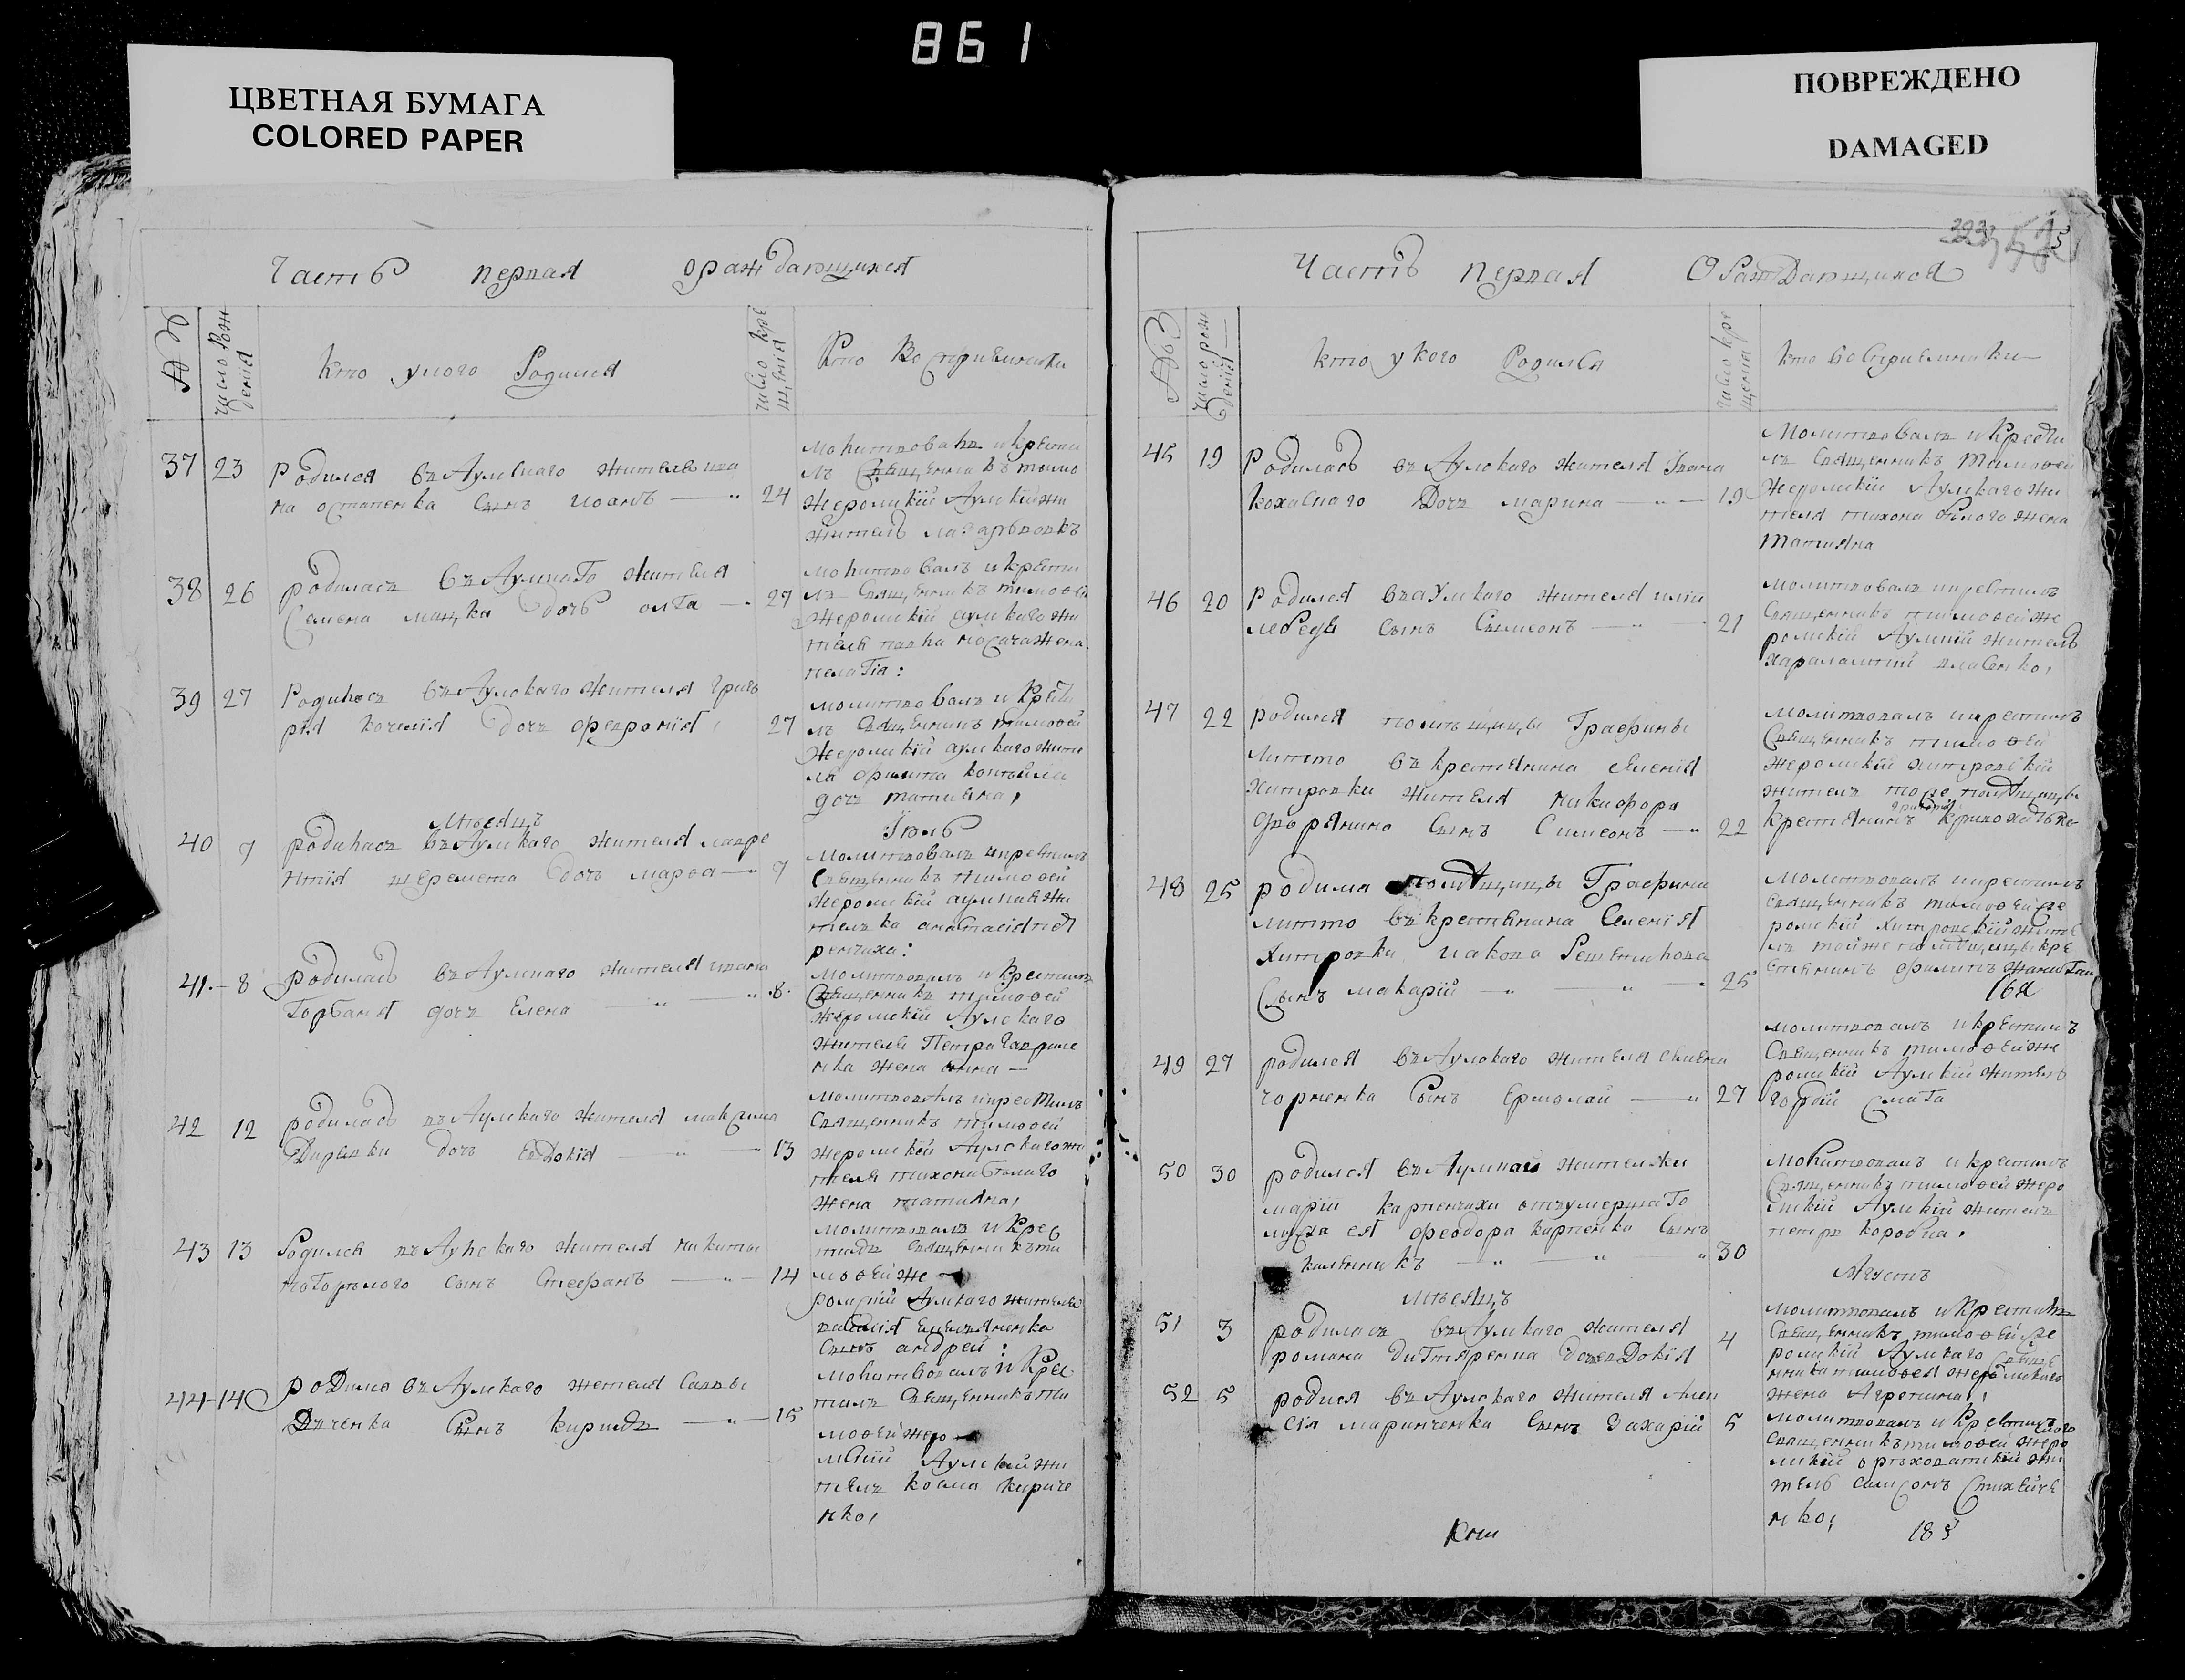 861
ЦВЕТНАЯ БУМАГА
COLORED PAPER
ПОВРЕЖДЕНО
DAMAGED
Часть первая ораждающихся
число рож
денія
кто укого Родился
число кре
щенія
Кто Восприемники
37 23 Родился въ Аулскаго жителя ива
на остапенка Сынъ иоанъ 24
молитвовалъ и крести
лъ Священникъ тимо
Жеромскій Аулскій жи
житель
38 26 родилась въ Аулскаго жителя
Семена мацки дочь олга 27
молитвовалъ и крести
лъ Священникъ тимоѳей
Жеромскій аулскаго жи
теля жена
пелагія:
39 27 Родилась въ Аулскаго жителя григо
рія дочь феврониія 27
молитвовалъ и крести
лъ Священникъ тимоѳей
Жеромскій аулскаго жите
ля
дочь татияна,
Мѣсяцъ Іюль
40 7 родилась въ Аулскаго жителя лавре
нтія шеремета дочь марѳа 7
молитвовалъ икрестилъ
Священникъ тимоѳей
Жеромскій аулская жи
телька анастасія
41 8 родилась въ Аулскаго жителя ивана
Горбаня дочь Елена 8
молитвовалъ и крестилъ
Священникъ тимоѳей
жеромскій Аулскаго
жителя Петра Гаврише
нка жена
42 12 родилась въ Аулскаго жителя максима
дочь Евдокія 13
молитвовалъ икрестилъ
Священникъ тимоѳей
жеромскій Аулскаго жи
теля тихона белаго
жена татияна,
43 13 Родился въ Аулскаго жителя никиты
погорѣлого сынъ Стефанъ 14
молитвовалъ и крес
тилъ Священникъ ти
моѳей же
ромскій Аулскаго жителя
василія емельяненка
Сынъ андрей:
44 14 родился въ Аулскаго жителя саввы
Дяченка Сынъ кирилъ 15
молитвовалъ и крес
тилъ Священникъ ти
моѳей жеро
мскій Аулскій жи
тель козма кириче
нко,
Часть первая О Раждающихся
число рож
денія
кто укого Родился
число кре
щенія
кто восприемники
45 19 Родилась въ Аулскаго жителя Ивана
кохаснаго Дочь марина 19
Молитвовалъ и крести
лъ Священникъ Тимоѳей
Жеромскій Аулскаго жи
теля тихона бѣлого жена
Татияна
46 20 родился въ аулскаго жителя иліи
лебедя сынъ Сымеонъ 21
молитвовалъ икрестилъ
Священникъ тимоѳей же
ромскій Аулскій житель
харалампій власенко,
47 22 родился помѣщицы Графины
литто въ крестянина селенія
хитровки жителя никифора
дворянина Сынъ Симеонъ 22
молитвовалъ икрестилъ
Священникъ тимоѳей
жеромскій хитровскій
житель тойже помѣщицы
крестянинъ григорій
48 25 родился помѣщицы Графини
литто въ крестянина Селенія
хитровка иакова Решетнкова
Сынъ макарій 25
молитвовалъ икрестилъ
священникъ тимоѳей же
ромскій хитровскій жите
ль тойже помѣщицы кре
стянинъ филипъ
49 27 родился въ Аулскаго жителя семена
чорненка Сынъ Ермолай 27
молитвовалъ икрестилъ
Священникъ тимоѳей же
ромскій Аулскій житель
гордій смага
50 30 родился въ Аулской жителки
маріи карпенчихи отъ умершаго
мужа ея феодора карпенка сынъ
калинникъ 30
молитвовалъ и крестилъ
Священникъ тимоѳей жеро
мскій Аулскій житель
петръ коробка,
мѣсяцъ Августъ
51 3 родилась въ Аулскаго жителя
романа дочь евдокія 4
молитвовалъ и крестилъ
Священникъ тимоѳей же
ромскій Аулскаго Священ
ника тимоѳея жеромскаго
жена Агрепина,
52 5 родися въ Аулскаго жителя Алек
сія маринченка Сынъ Захарій 5
молитвовалъ и крестилъ
священникъ тимоѳей жеро
мскій жи
тель самсонъ
нко,